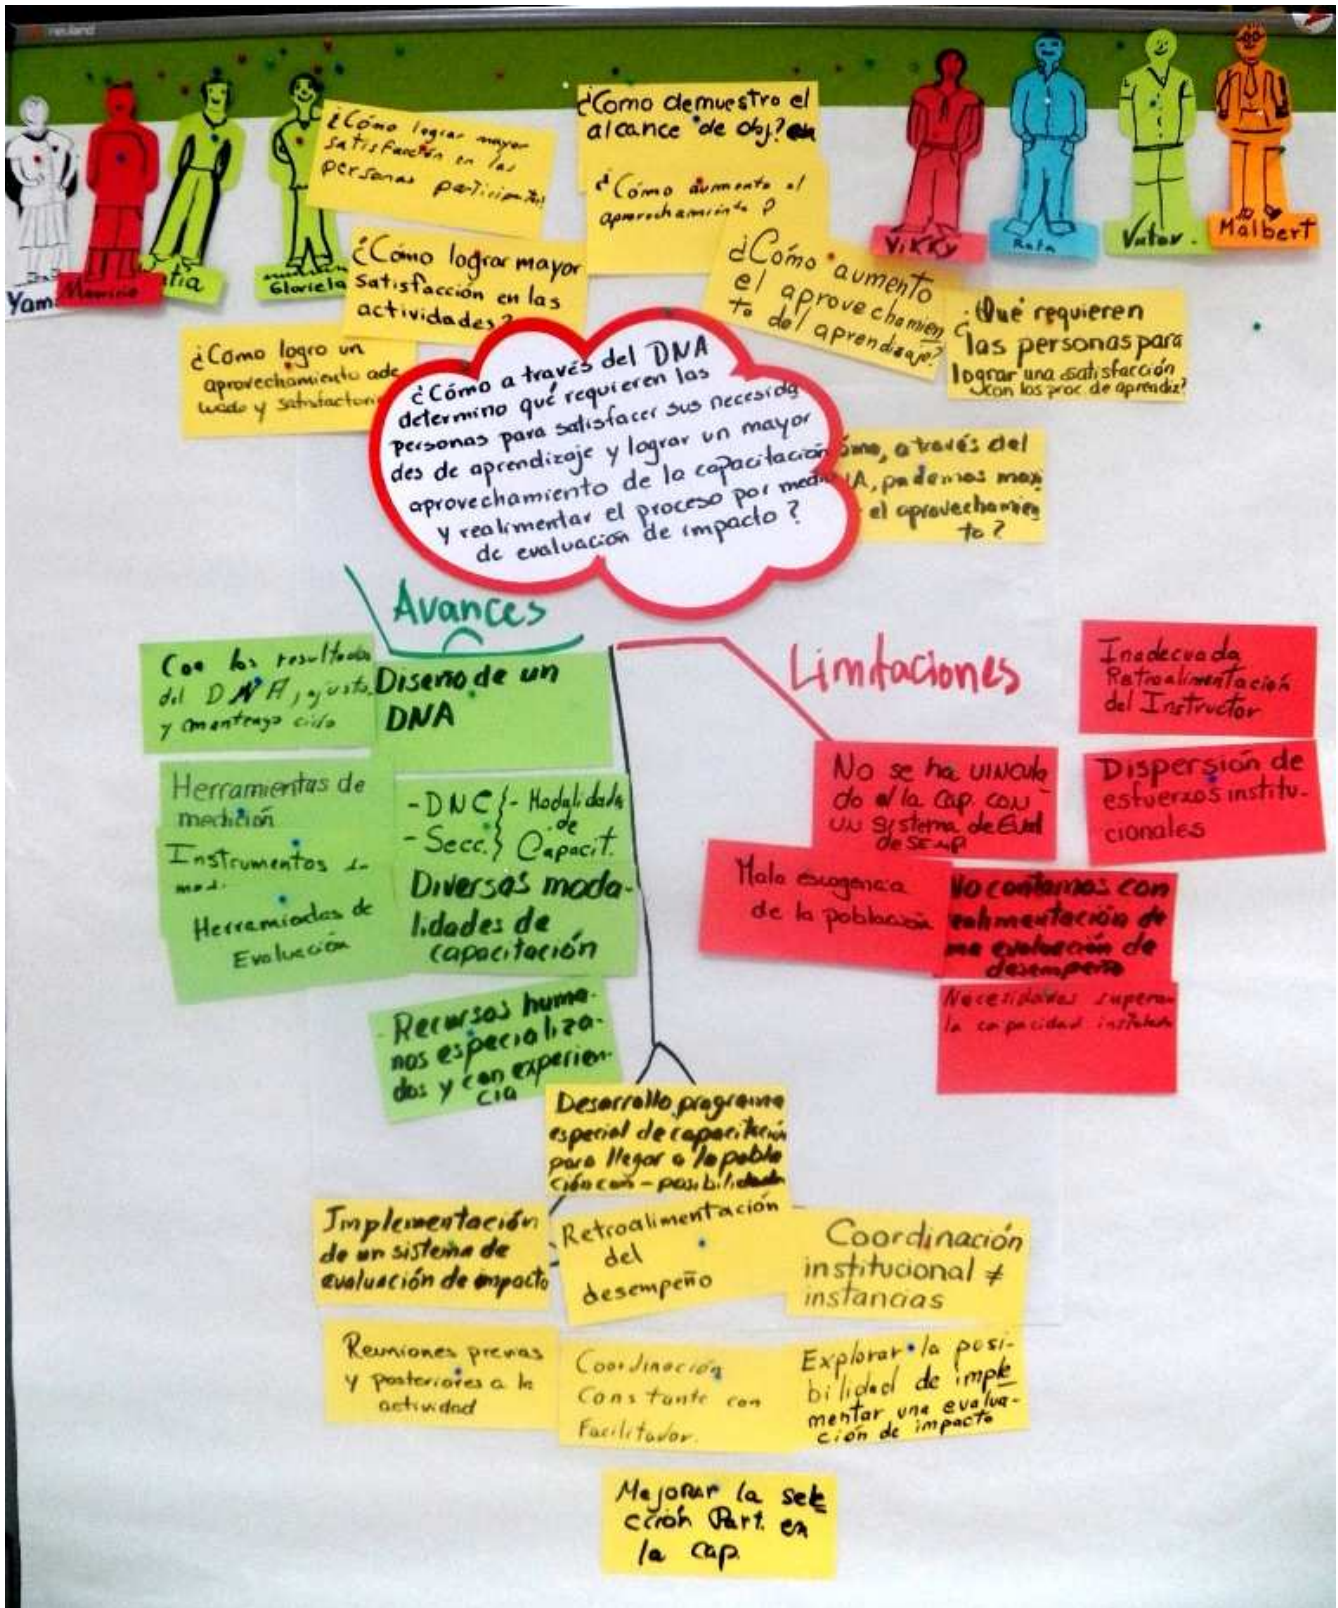 neuland
¿Cómo lograr mayor
satisfacción en las
personas participantes?
¿Como demuestro el
alcance de obj? en
¿Cómo aumento el
aprovechamiento?
Yam
Mauricio
tia
Gloriela
Vikky
Rafa
Malbert
¿Cómo lograr mayor
satisfacción en las
actividades?
¿Cómo aumento
el aprovechamien
to del aprendizaje?
¿Qué requieren
las personas para
lograr una satisfacción
con los proc. de aprendiz?
¿Como logro un
aprovechamiento ade
cuado y satisfactor
¿Cómo a través del DNA
determino qué requieren las
personas para satisfacer sus necesida
des de aprendizaje y lograr un mayor
aprovechamiento de la capacitación
y realimentar el proceso por medio
de evaluación de impacto?
ómo, a través del
NA, podemos maxi
el aprovechamien
to?
Avances
Con los resultados
del DNA, ajusto
y mantengo ciclo
Diseño de un
DNA
Herramientas de
medición
- DNC } - Modalidades
de
- Secc. } Capacit.
Instrumentos
Herramientas de
Evaluación
Diversas moda-
lidades de
capacitación
- Recursos huma-
nos especializa-
dos y con experien-
cia
Limitaciones
Inadecuada
Retroalimentación
del Instructor
No se ha vincula
do la cap. con
un sistema de Eval
desemp
Dispersión de
esfuerzos institu-
cionales
Mala escogencia
de la población
No contamos con
realimentación de
una evaluación de
desempeño
Necesidades superan
la capacidad instalada
Desarrollo programa
especial de capacitación
para llegar a la pobla
ción con - posibilidades
Implementación
de un sistema de
evaluación de impacto
Retroalimentación
del
desempeño
Coordinación
institucional ≠
instancias
Reuniones previas
y posteriores a la
actividad
Coordinación
Constante con
Facilitador.
Explorar la posi-
bilidad de imple
mentar una evalua-
ción de impacto
Mejorar la sele
cción Part. en
la cap.